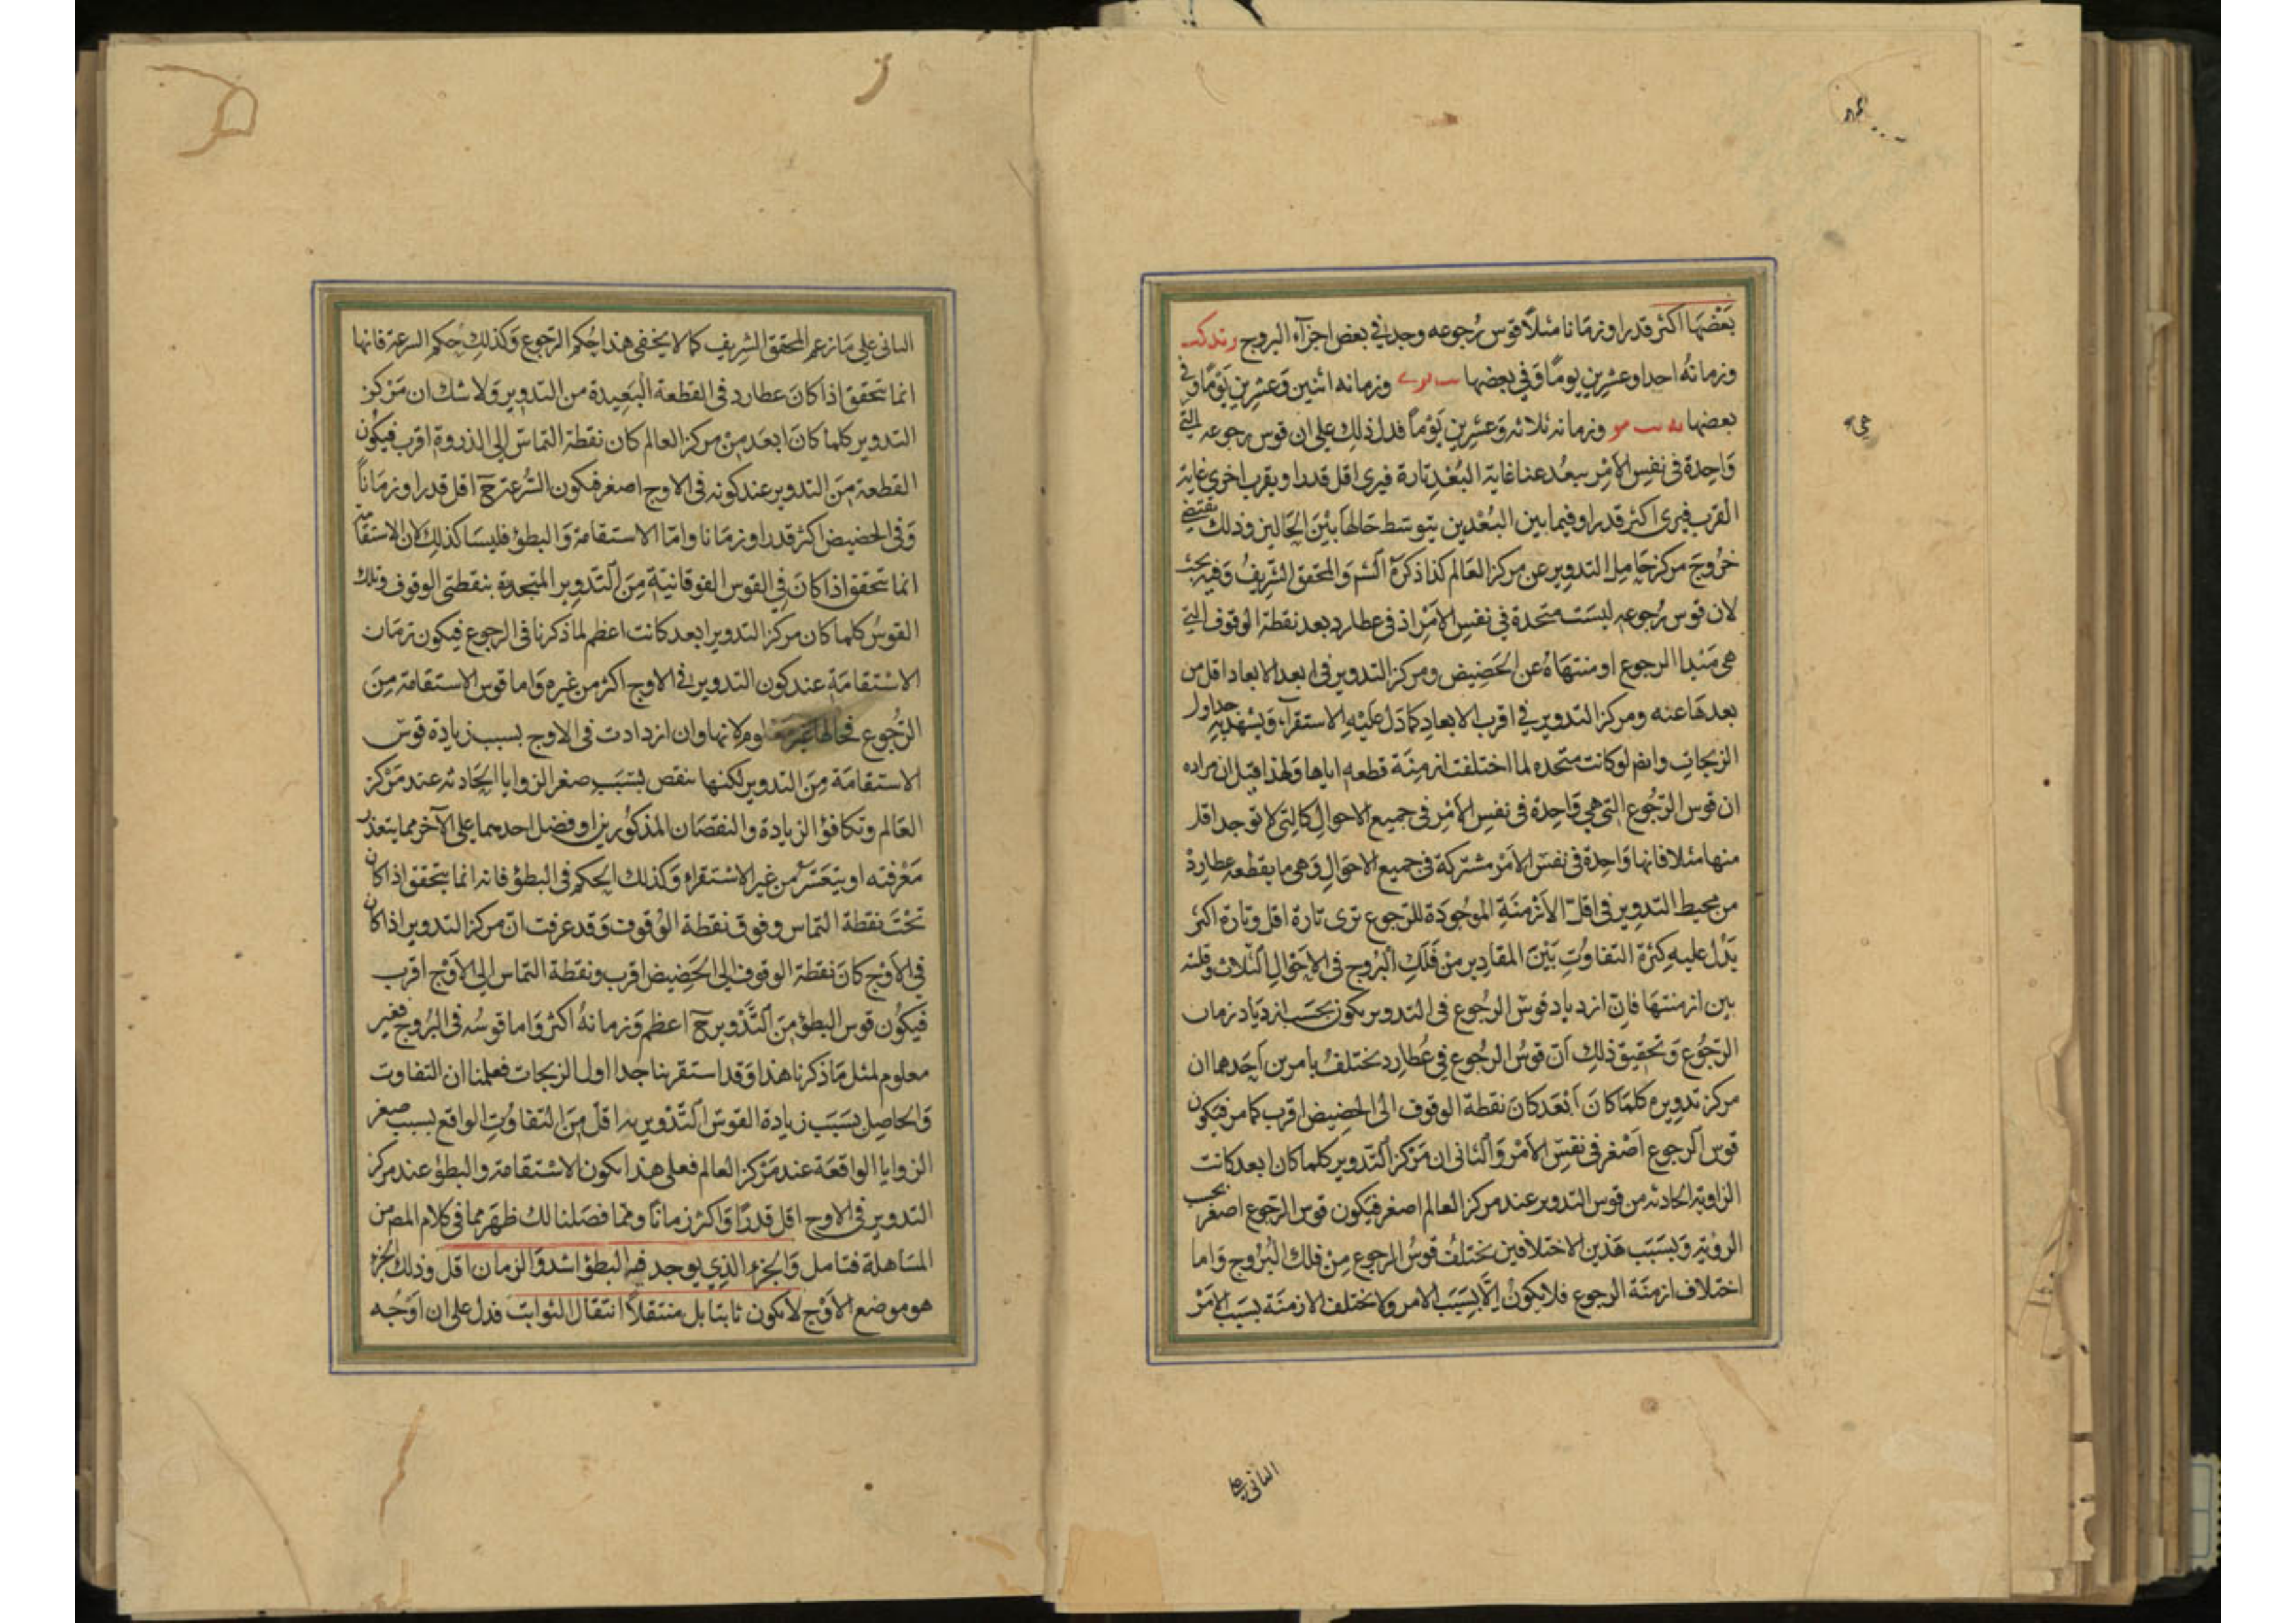 بَعْضَهَا اكثر قدرا وزمانا مثلًا قوس رُجوعه وجد في بعض اجزآء البروج
وزمانهُ احدا وعشرين يومًا وَفي بعضها وزمانه اثنين وَعشرين يَوْمًا وفي
بعضها وزمانه ثلاثه وَعشرين يَوْماً فدل ذلك على ان قوس رجوعه التي
وَاحِدة في نفسِ الاَمْرِ يبعُد عنا غاية البُعْدِ تارة فيرى اقل قدرا ويقرب اخرى غاية
القرب فيرى اكثر قدرا وفيما بين البُعْدين يتوسّط حَالهَا بيْنَ الحَالين وذلك يقتضى
خرُوجَ مركز حَامِل التدويرِ عن مركز العَالم كذا ذكرَهُ الشم وَالمحقق الشريفُ وَفيه بحث
لان قوس رُجوعه ليسَت متحدة في نفس الاَمْر اذ في عطارد بعد نقطة الوقوف التي
هي مَبْدا الرجوع او منتهَاهُ عن الحَضِيض ومركز التدوير في ابعد الابعاد اقل من
بعدهَا عنه ومركز التدوير في اقرب الابعادِ كما دَل عَليْهِ الاستقرآء وَيشهد به جداول
الزيجاتِ وايضا لو كانت متحده لما اختلفت ازمِنَة قطعه اياها وَلهذا قيل ان مراده
ان قوس الرّجُوع التي هي وَاحِدة في نفس الاَمْر في جميع الاحوالِ كالتي لا توجد اقل
منها مثلا فانها وَاحِدة في نفس الاَمْر مشتركة في جميع الاحوَالِ وَهي ما يقطعه عطارد
من محيط التدويرِ في اقلّ الاَزْمِنَةِ الموجُودَة للرّجوع ترى تارة اقل وتارة اكثر
يَدُلّ عليهِ كثرة التفاوُتِ بَيْنَ المقادير من فَلَكِ البُرُوج في الاحوَالِ الثلاث وقلته
بين ازمنتهَا فانّ ازدياد قوسِ الرجُوع في التدوير يكون بحَسَب ازديَاد زمان
الرّجُوع وَتحقيق ذلك انّ قوسُ الرجُوع في عُطارِد يختلفُ بامرين اَحَدهما ان
مركز تدويره كلمَا كانَ اَبْعَد كانَ نقطة الوقوف الى الحضِيض اقرب كما مر فيكون
قوس الرجوع اَصْغر في نفسِ الاَمْر وَالثاني ان مَرْكز التّدوير كلما كان ابعد كانت
الزاوية الحادثه من قوس التدوير عند مركز العالم اصغر فيَكون قوس الرّجوع اصغر بحسب
الرؤيةِ وَبسَبَب هَذين الاختلافين يختلفُ قوسُ الرجوع مِنْ فلك البُرُوج وَاما
اختلاف ازمنَة الرجوع فلا يكوْنُ الاّ بسَبَب الامر ولا يختلف الازمنَة بسَبَب الاَمْر
الثاني على
الثاني على مَا زعم المحقق الشريف كما لا يخفى هذا حُكم الرّجوع وَكذلك حكم السرعة فانها
انما تتحقق اذا كانَ عطارد في القطعة البَعِيدة من التدوير وَلا شك ان مَرْكز
التدوير كلما كانَ ابعَد مِنْ مركز العالم كان نقطة التماسّ الى الذروة اقرب فيكُون
القطعة مِنَ التدوير عند كونه في الاوج اصغر فيكون السُّرعة حَ اقل قدرا وزمَاناً
وَفي الحضيض اكثر قدرا وزمَانا وامّا الاستقامة وَالبطؤ فليسَا كذلك لان الاستقامة
انما تتحقق اذا كانَ في القوس الفوقانيّة مِنَ التّدوير المتحددة بنقطتي الوقوف وتلك
القوسُ كلما كان مركز التدوير ابعد كانت اعظم لما ذكرنا في الرجوع فيكون زمَان
الاسْتقامَةِ عند كون التدوير في الاوج اكثر من غيره وَاما قوس الاستقامة مِنَ
الرّجُوع فحالها غير معلوم لانها وان ازدادت في الاوج بسبب زيادة قوس
الاستقامَة مِنَ التدوير لكنها ينقص بسَبَبِ صغر الزوايا الحَادثه عند مَرْكز
العَالم وتكافؤ الزيادة والنقصَان المذكورين او فضل احدهما على الآخر مما يتعذر
مَعْرفته او يتعَسّر من غير الاسْتقراء وَكذلك الحكم في البطؤ فانه انما يتحقق اذا كان
تَحْتَ نقطة التماس وفوق نقطة الوُقوف وَقد عرفت انّ مركز التدوير اذا كان
في الاَوْج كانَ نقطة الوقوف الى الحَضِيض اقرب ونقطة التماس الى الاَوْج اقرب
فيَكُون قوس البطؤ مِنَ التّدْوير حَ اعظم وَزمانهُ اكثر وَاما قوسُه في البُرُوج فغير
معلوم لمثل مَا ذكرنا هذا وَقد استقرينا جداول الزيجات فعلمنا ان التفاوت
وَالحاصِل بسَبَب زيادة القوس التّدْويريه اقلّ مِنَ التفاوُتِ الواقع بسبب صغر
الزوايا الواقعَة عند مَرْكز العالم فعلى هذا يكون الاسْتقامة والبطؤ عند مركز
التدوير في الاوج اقل قدرًا وَاكثر زمانًا ومما فصَلنا لك ظهَر مما في كلام المص من
المسَاهلة فتامل وَالجُزء الذِي يوجد فيه البطؤ اشد وَالزمان اقل وذلك الجُزء
هو موضع الاَوْج لا يكون ثابتا بل منتقلاً انتقال الثوابت فدل على ان اَوْجُه